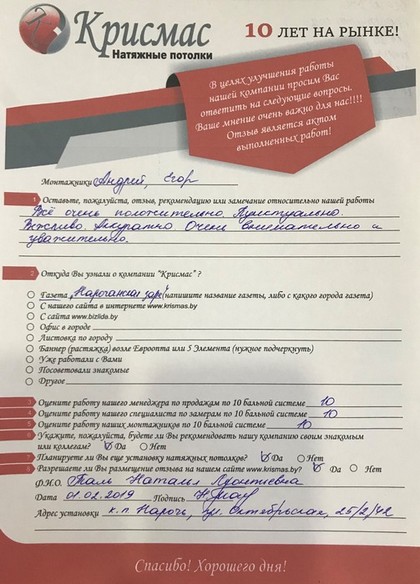 Крисмас
Натяжные потолки
10 ЛЕТ НА РЫНКЕ!
В целях улучшения работы
нашей компании просим Вас
ответить на следующие вопросы.
Ваше мнение очень важно для нас!!!!
Отзыв является актом
выполненных работ!
Монтажники Андрей, Егор
1 Оставьте, пожалуйста, отзыв, рекомендацию или замечание относительно нашей работы
Всё очень положительно. Пунктуально.
Вежливо. Аккуратно. Очень внимательно и
уважительно.
2 Откуда Вы узнали о компании "Крисмас" ?
Газета "Нарочанская зара" (напишите название газеты, либо с какого города газета)
С нашего сайта в интернете www.krismas.by
С сайта www.bizlida.by
Офис в городе
Листовка по городу
Баннер (растяжка) возле Евроопта или 5 Элемента (нужное подчеркнуть)
Уже работали с Вами
Посоветовали знакомые
Другое
3 Оцените работу нашего менеджера по продажам по 10 бальной системе 10
4 Оцените работу нашего специалиста по замерам по 10 бальной системе 10
5 Оцените работу наших монтажников по 10 бальной системе 10
6 Укажите, пожалуйста, будете ли Вы рекомендовать нашу компанию своим знакомым
или коллегам? Да Нет
Планируете ли Вы еще установку натяжных потолков? Да Нет
Разрешаете ли Вы размещение отзыва на нашем сайте www.krismas.by? Да Нет
Ф.И.О. Наталья Леонтьевна
Дата 01.02.2019 Подпись
Адрес установки к.п. Нарочь, ул. Октябрьская, 25/2/42
Спасибо! Хорошего дня!